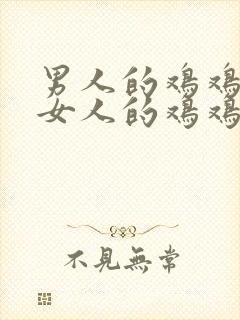 男人的鸡鸡
女人的鸡鸡
不見無常